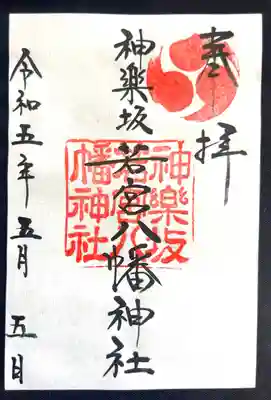 奉拝
神楽坂
若宮八幡神社
神樂坂
若宮八
幡神社
令和五年五月五日